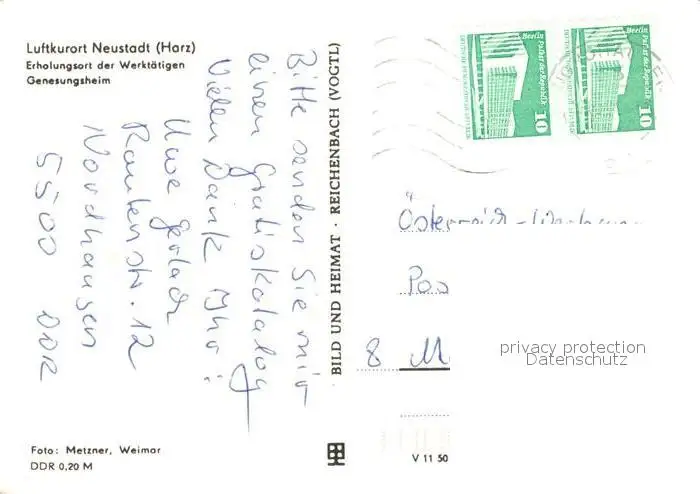 Luftkurort Neustadt (Harz)
Erholungsort der Werktätigen
Genesungsheim
Bitte senden Sie mir
einen Gratiskatalog
Vielen Dank Ihr:
Uwe Gerlach
Rautenstr. 12
Nordhausen
5500 DDR
Foto: Metzner, Weimar
DDR 0,20 M
BILD UND HEIMAT · REICHENBACH (VOGTL)
V 11 50
Berlin Palast der Republik
10
Berlin Palast der Republik
10
Österreich-
Pos
8 M
privacy protection
Datenschutz